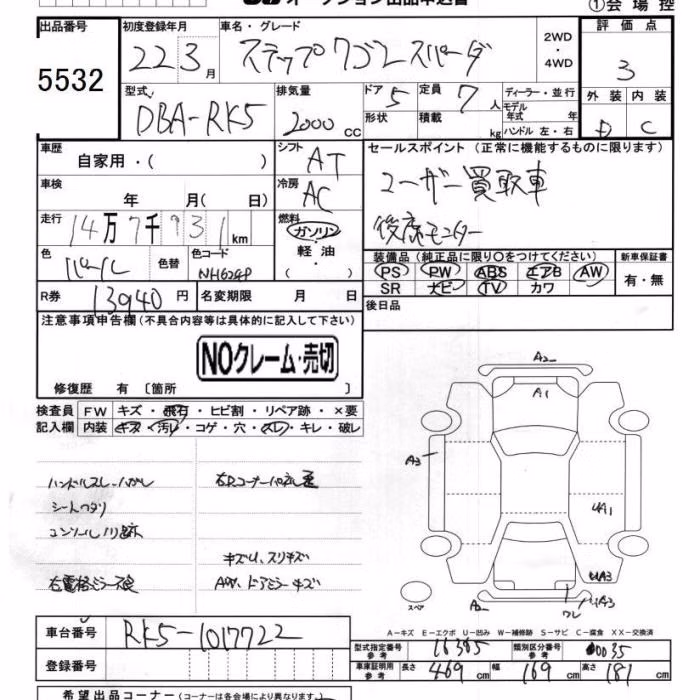 オークション出品申込書
①会場控
出品番号 初度登録年月 車名・グレード 評価点
5532 22 3月 ステップワゴンスパーダ 2WD・4WD 3
型式 排気量 ドア 定員 ディーラー・並行 外装 内装
DBA-RK5 2000cc 5 7人 モデル年式 年 D C
形状 積載 kg ハンドル 左・右
車歴 シフト セールスポイント(正常に機能するものに限ります)
自家用・( ) AT
ユーザー買取車
車検 年 月( 日) 冷房 AC
後席モニター
走行 14万7千931km 燃料 ガソリン・軽油・( )
色 パール 色替 色コード NH624P
装備品(純正品に限り○をつけてください) 新車保証書
PS PW ABS エアB AW 有・無
SR ナビ TV カワ
R券 13940円 名変期限 月 日
後日品
注意事項申告欄(不具合内容等は具体的に記入して下さい)
NOクレーム・売切
修復歴 有 〔箇所 〕
検査員 FW キズ・飛石・ヒビ割・リペア跡・×要
記入欄 内装 キズ・汚レ・コゲ・穴・スレ・キレ・破レ
ハンドルスレ・ハガレ
シートヘタリ
キズU、スリキズ
AW、ドアミラーキズ
A2
A1
A3
UA1
UA3
UA3
A2
ワレ
スペア
A-キズ E-エクボ U-凹み W-補修跡 S-サビ C-腐食 XX-交換済
車台番号 RK5-1017722
型式指定番号 参考 16385 類別区分番号 参考 0035
登録番号
車庫証明用 参考 長さ 469cm 幅 169cm 高さ 181cm
希望出品コーナー(コーナーは各会場により異なります)